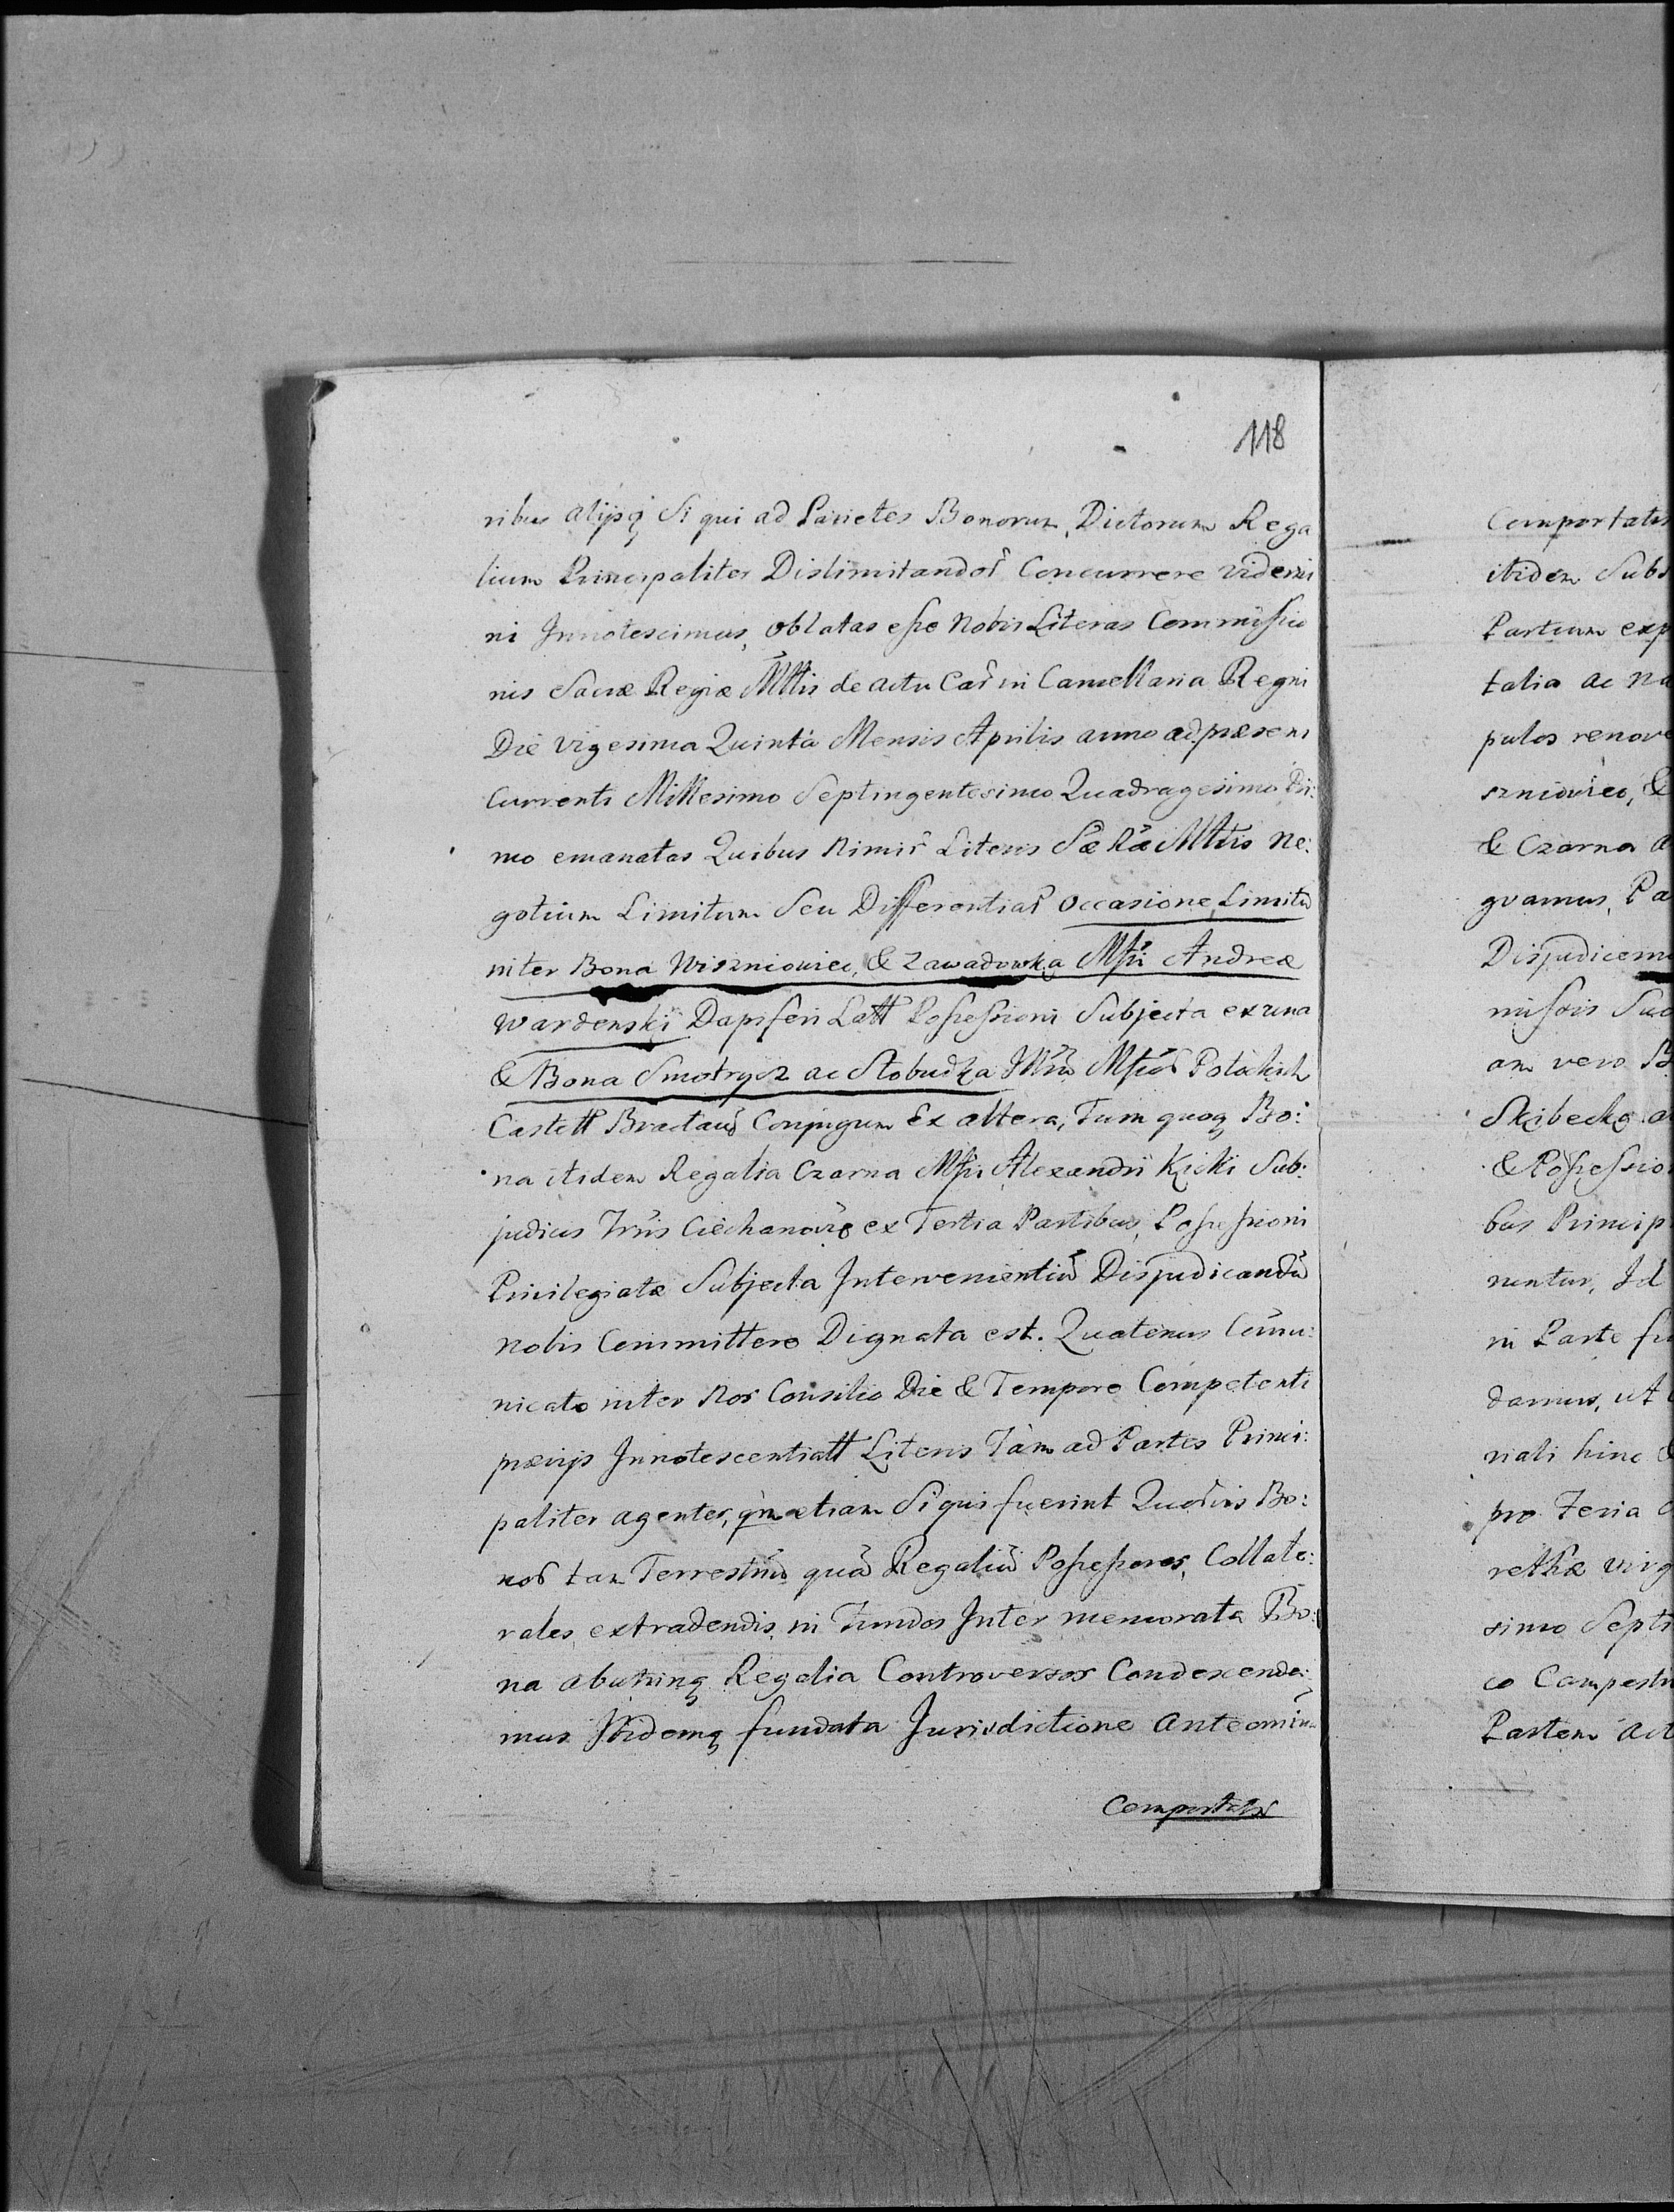 118
ribus alijsq́ Si qui ad Parietes Bonorum, Dictorum Rega
lium Principaliter Dislimitandor̃ Concurrere videri
ni Innotescimus, oblatas esse Nobis Literas Commissio
nis Sacræ Regiæ Mttis de actu Car̃ in Cancellaria Regni
Die Vigesima Quinta Mensis Aprilis anno ad præsens
Currenti Millesimo Septingentesimo Quadragesimo Pri:
mo emanatas Quibus Nimir̃ Literis Sæ Ræ Mttis Ne:
gotium Limitum Seu Differentiar̃ Occasione Limitũ
inter Bona Wiszniowiec, & Zawadowka Mfci Andreæ
Wardenski Dapiferi Latt Possessioni Subjecta ex una
& Bona Smotrycz ac Słobudka Illrũ Mfcor̃ Potockich
Castell Braclaũ Conjugum Ex altera, Tum quoq Bo:
na itidem Regalia Czarna Mfci Alexandri Kicki Sub:
judicis Trris Ciechanoviẽ ex Tertia Partibus, Possessioni
Privilegiatæ Subjecta Intervenientiũ Disjudicandũ
nobis Committere Dignata est. Quatenus Com̃u:
nicato inter Nos Consilio Die & Tempore Competenti
prævijs Innotescentialł Literis Tam ad Partes Princi:
paliter agentes, qm̃ etiam Si qui fuerint Quorvis Bo:
nor̃ tam Terrestriũ quã Regaliũ Possessores, Collate:
rales extradendis in Fundos Inter memorata Bo:
na abutrinq Regalia Controversos Condescenda:
mus Ibidemq fundata Jurisdictione Anteomin̄
Comportatis
Comportatis
itidem Subs
Partium exp
talia ac Na
pulos renove
szniowiec, &
& Czarna a
gvamus, Pa
Disjudicemu
missoris Suo
am vero B
Skibecka a
& Possessio
bus Princip
nuntur, Id
in Parte fu
damus, ut
riali hinc &
pro Feria
rethæ Virg
simo Septi
co Campestri
Partem Act